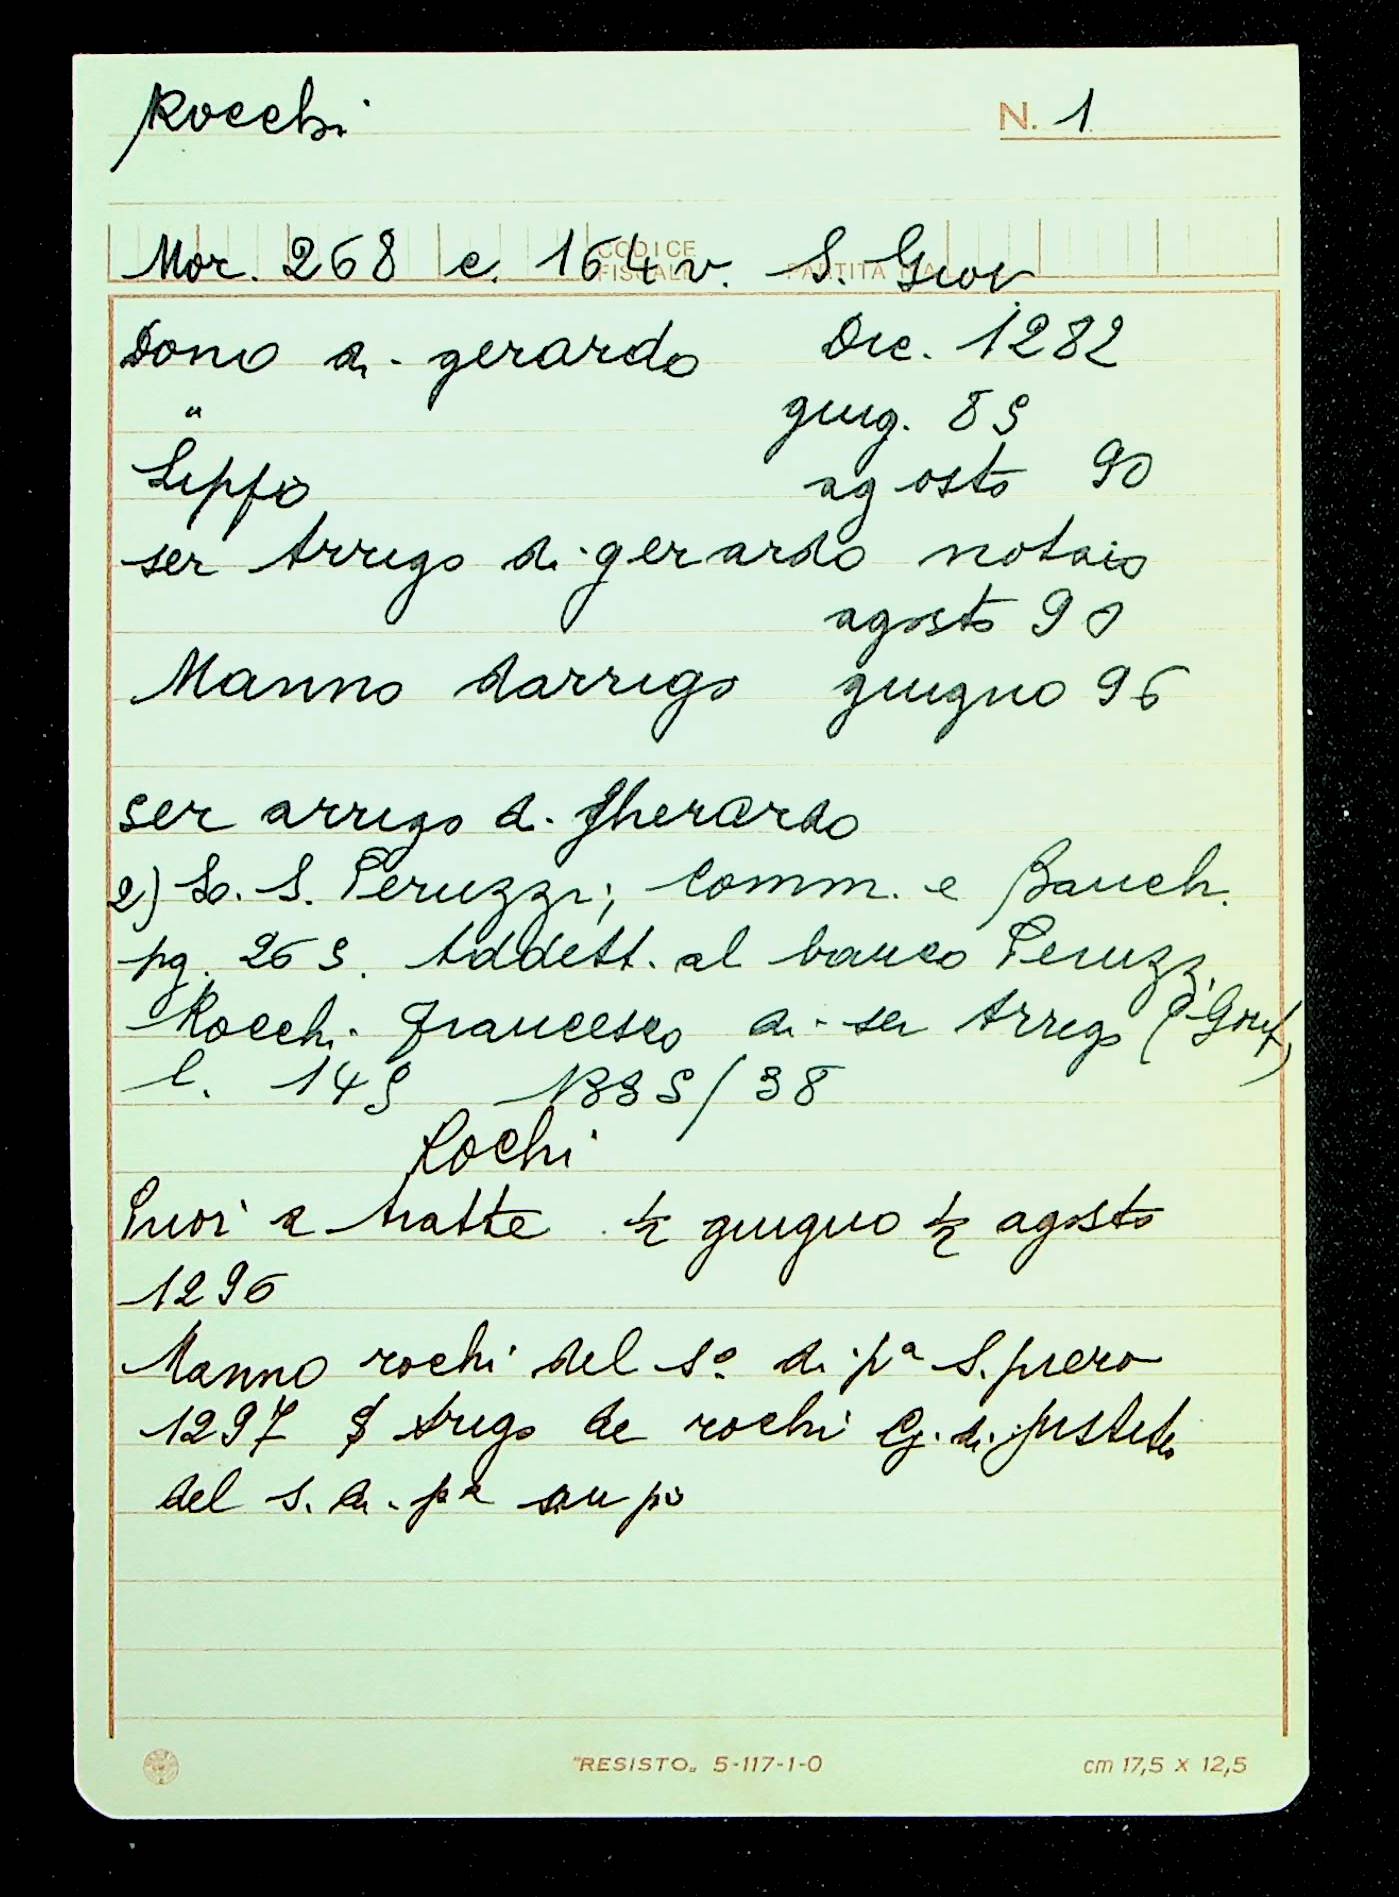 Rocchi N. 1
CODICE FISCALE PARTITA IVA
Mor. 268 c. 164 v. S. Giov.
Dono di gerardo Dic. 1282
" giug. 89
Lippo agosto 90
ser Arrigo di gerardo notaio
agosto 90
Manno darrigo giugno 96
ser arrigo di Gherardo
2) Lo. S. Peruzzi; Comm. e Banch.
pg. 269. Addett. al banco Peruzzi
Rocchi Francesco di ser Arrigo (Gonf.)
l. 149 1335/38
Rochi
Priori a tratte ½ giugno ½ agosto
1296
Manno rochi del so. di pa S. piero
1297 Arrigo de rochi G. di justitia
del s. di pa
"RESISTO" 5-117-1-0 cm 17,5 x 12,5